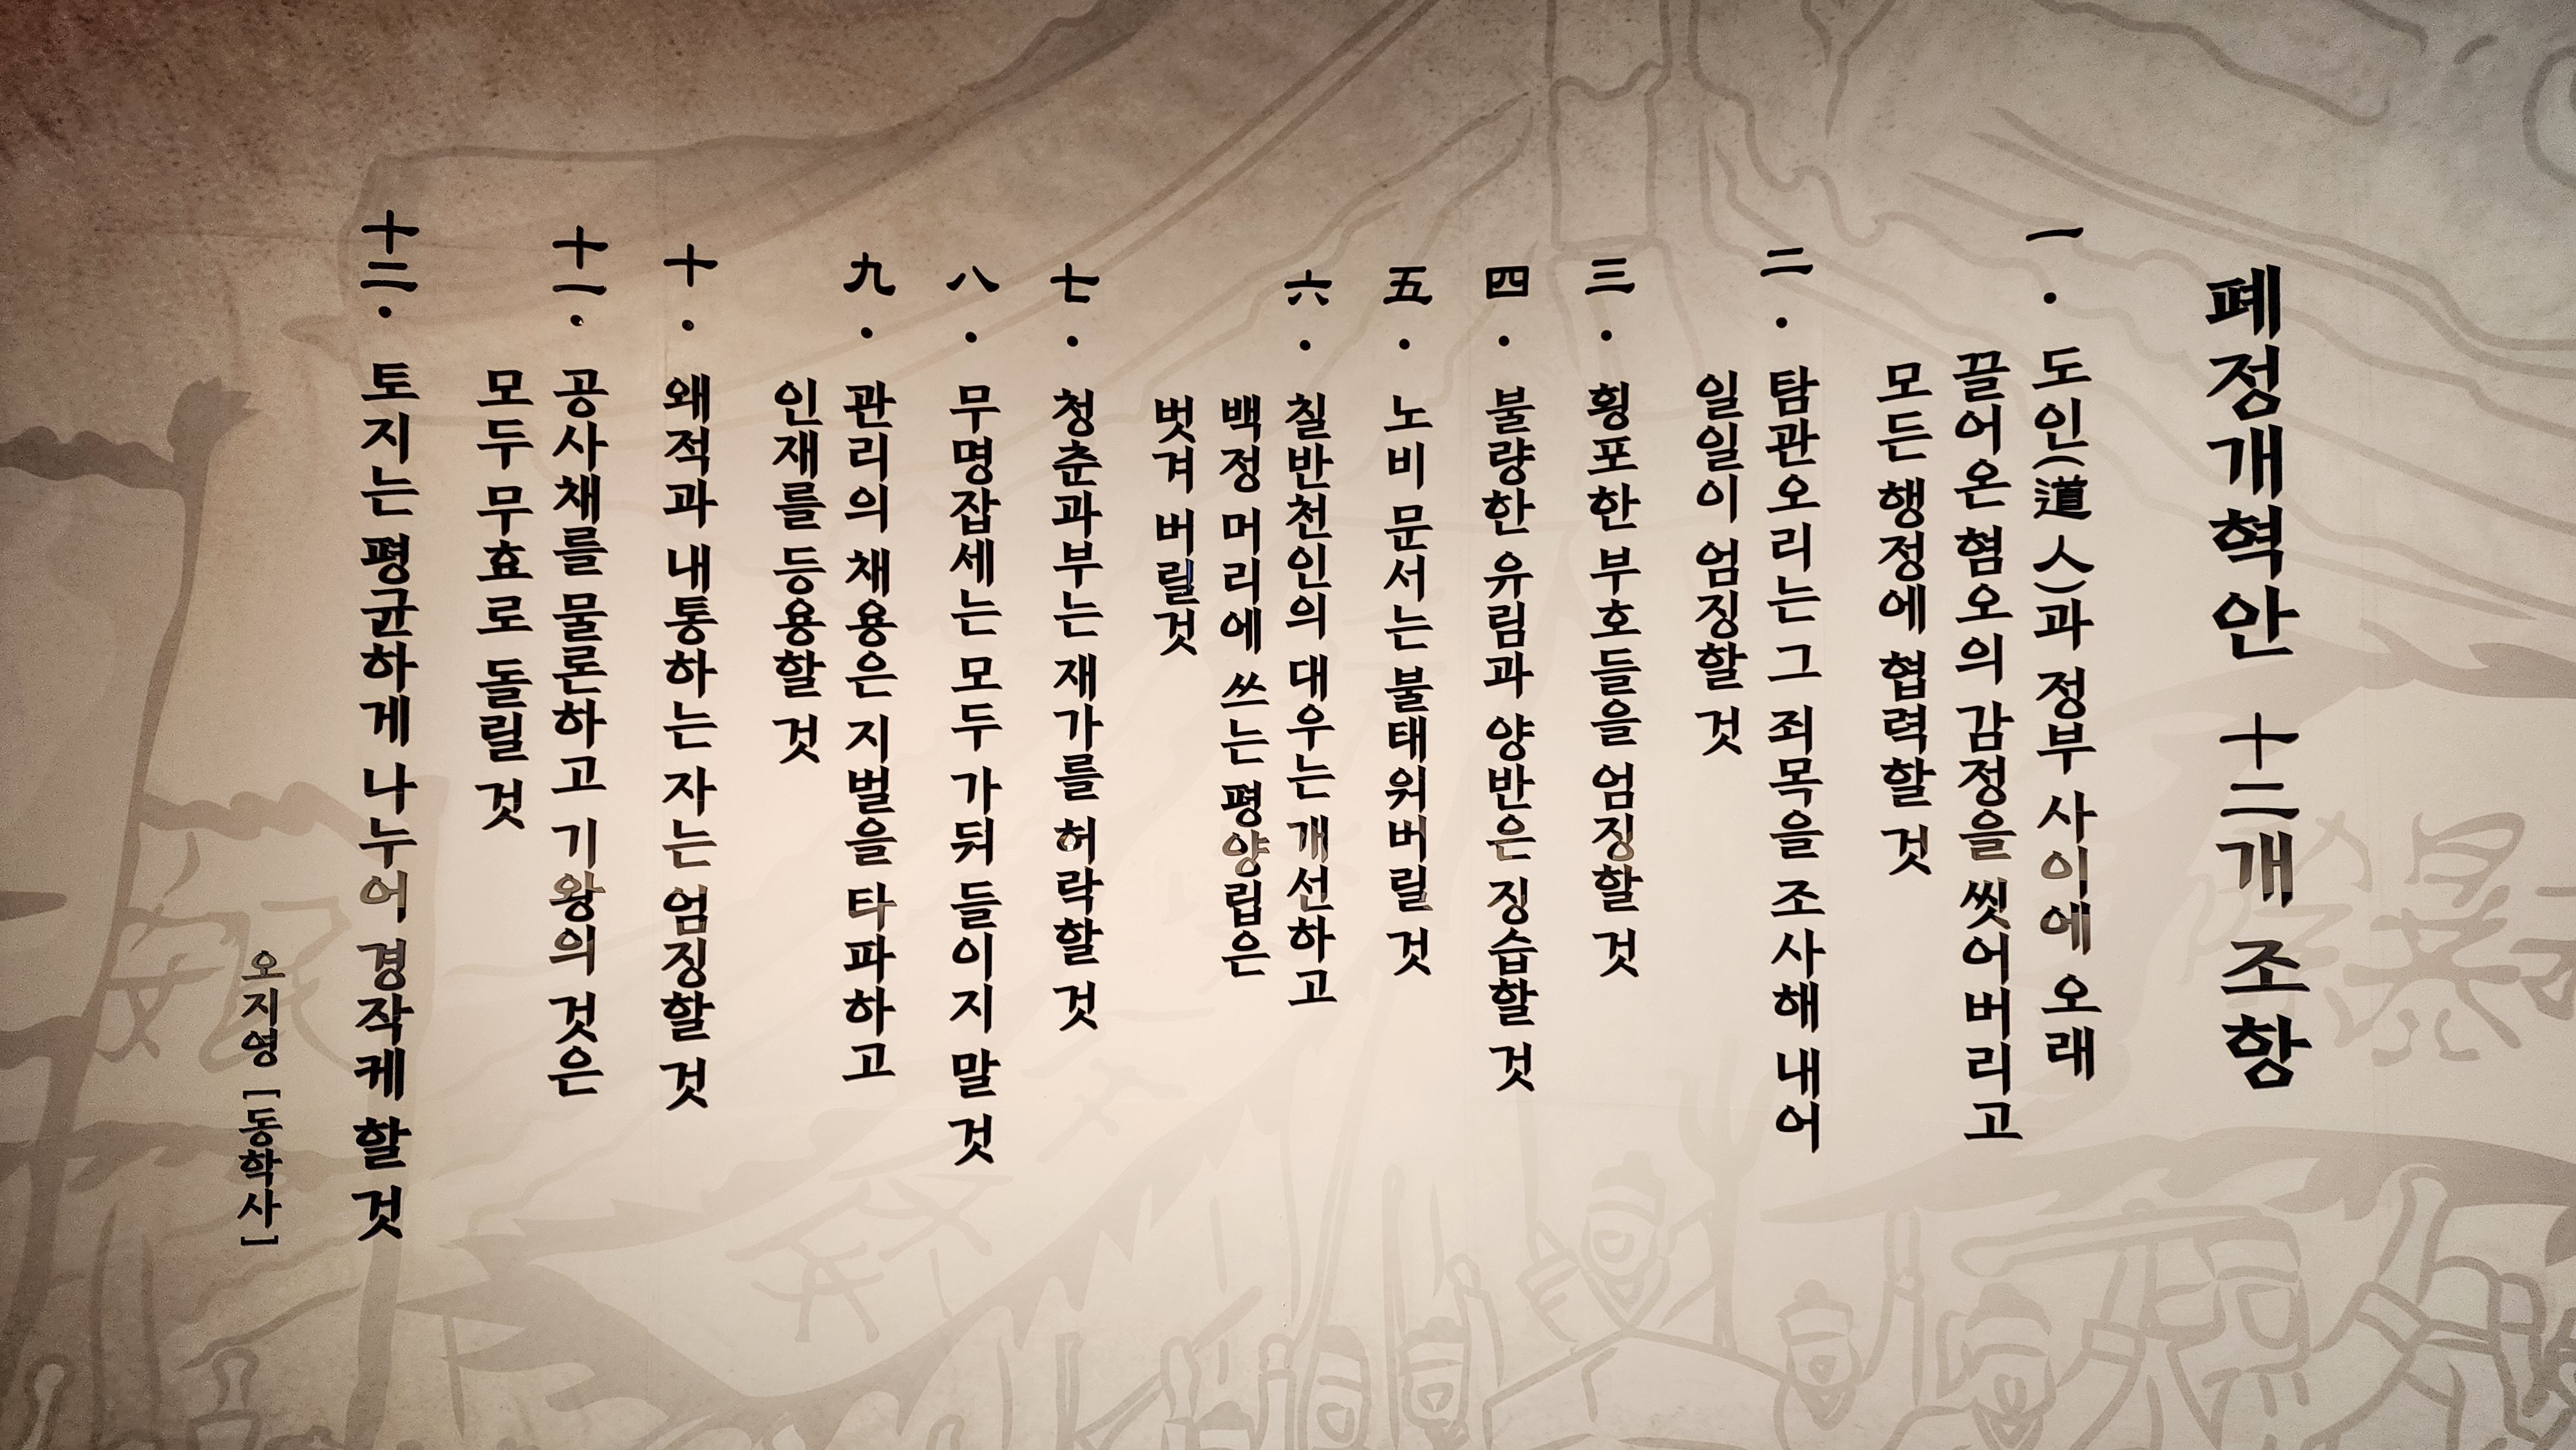 폐정개혁안 十二개 조항
一. 도인(道人)과 정부 사이에 오래
끌어온 혐오의 감정을 씻어버리고
모든 행정에 협력할 것
二. 탐관오리는 그 죄목을 조사해 내어
일일이 엄징할 것
三. 횡포한 부호들을 엄징할 것
四. 불량한 유림과 양반은 징습할 것
五. 노비 문서는 불태워버릴 것
六. 칠반천인의 대우는 개선하고
백정 머리에 쓰는 평양립은
벗겨 버릴것
七. 청춘과부는 재가를 허락할 것
八. 무명잡세는 모두 가둬 들이지 말 것
九. 관리의 채용은 지벌을 타파하고
인재를 등용할 것
十. 왜적과 내통하는 자는 엄징할 것
十一. 공사채를 물론하고 기왕의 것은
모두 무효로 돌릴 것
十二. 토지는 평균하게 나누어 경작케 할 것
오지영 [동학사]